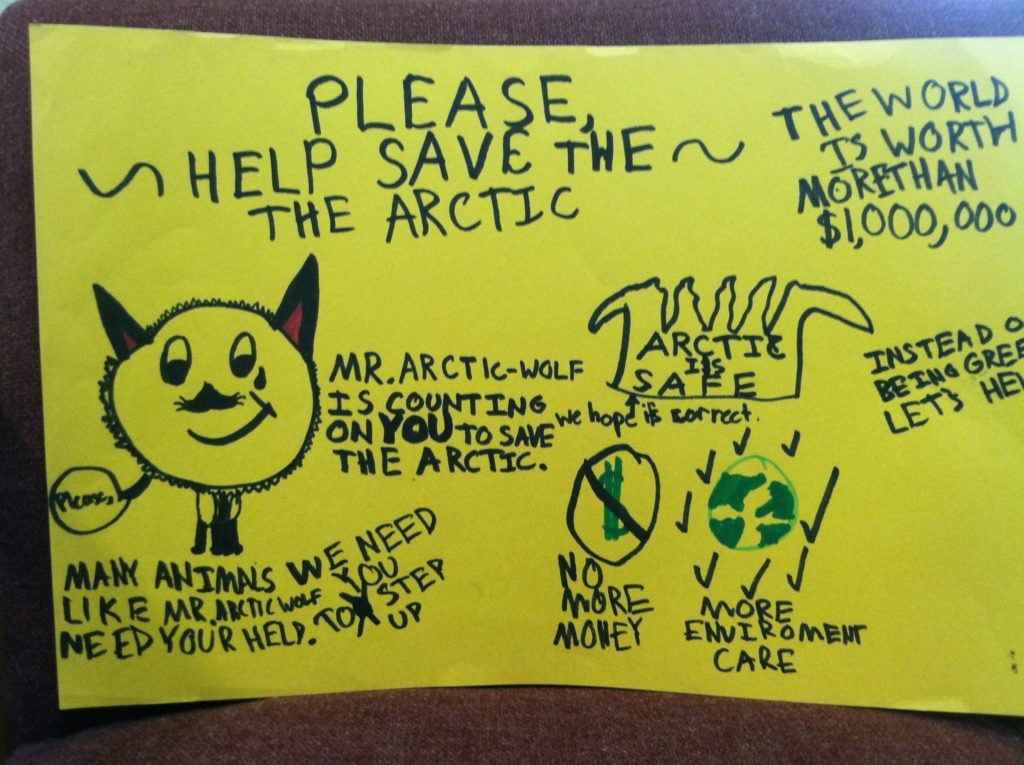 PLEASE,
HELP SAVE THE
THE ARCTIC
THE WORLD
IS WORTH
MORE THAN
$1,000,000
MR. ARCTIC-WOLF
IS COUNTING
ON YOU TO SAVE
THE ARCTIC.
ARCTIC
IS
SAFE
we hope is correct.
INSTEAD O
BEING GREE
LET'S HE
Please,
MANY ANIMALS
LIKE MR. ARCTIC WOLF
NEED YOUR HELP.
WE NEED
YOU
TO STEP
UP
$
NO
MORE
MONEY
MORE
ENVIROMENT
CARE